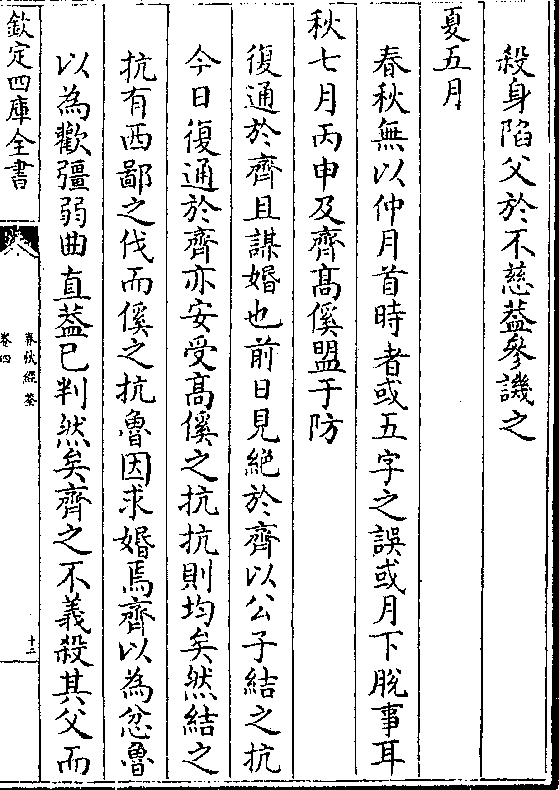 殺身陷父於不慈葢參譏之
夏五月
春秋無以仲月首時者或五字之誤或月下脫事耳
秋七月丙申及齊髙傒盟于防
復通於齊且謀婚也前日見絶於齊以公子結之抗
今日復通於齊亦安受髙傒之抗抗則均矣然結之
抗有西鄙之伐而傒之抗魯因求婚焉齊以為忿魯
以為歡彊弱曲直葢已判然矣齊之不義殺其父而
欽定四庫全書
春秋經筌
卷四
十三